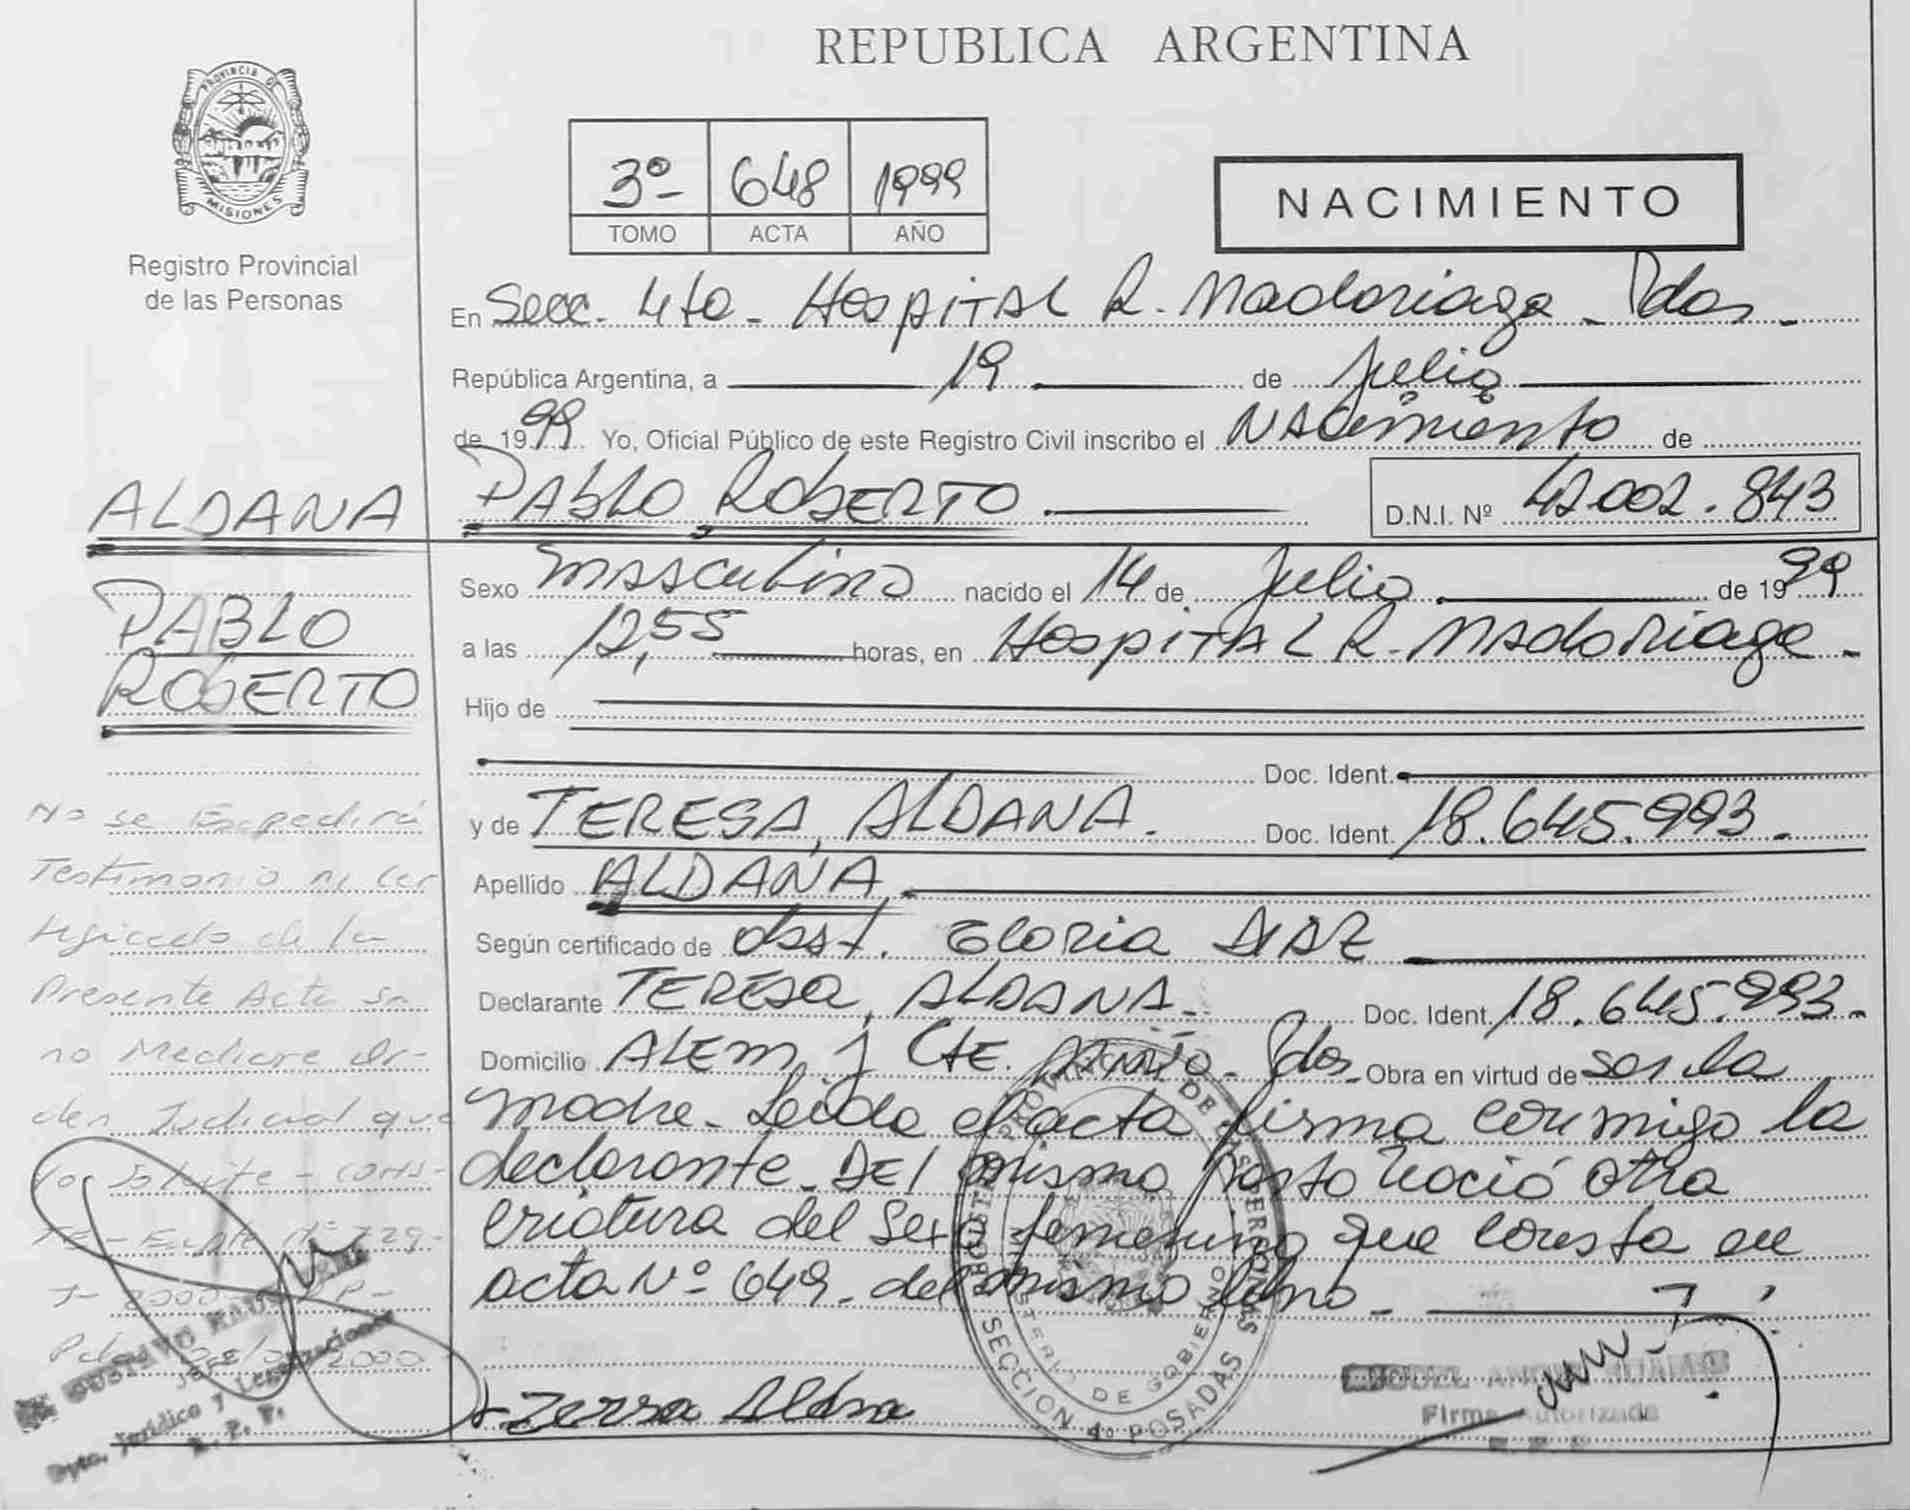 REPUBLICA ARGENTINA
PROVINCIA DE
MISIONES
Registro Provincial
de las Personas
3º 648 1999
TOMO ACTA AÑO
NACIMIENTO
En Secc. 4ta - Hospital R. Madariaga - Pdas -
República Argentina, a 19 de Julio
de 1999 Yo, Oficial Público de este Registro Civil inscribo el Nacimiento de
ALDANA PABLO ROBERTO.
D.N.I. Nº 42002.843
PABLO
ROBERTO
Sexo masculino nacido el 14 de Julio de 1999
a las 12,55 horas, en Hospital R. Madariaga -
Hijo de
Doc. Ident.
y de TERESA, ALDANA. Doc. Ident. 18.645.993.
Apellido ALDANA
Según certificado de obst. Gloria DIAZ
Declarante TERESA, ALDANA - Doc. Ident. 18.645.993.
Domicilio ALEM y Cte. Pdas - Obra en virtud de ser la
madre - Leida el acta firma conmigo la
declarante. DEl mismo parto nació otra
criatura del Sexo femenino que consta en
acta Nº 649 - del mismo libro -
No se Expedirá
Testimonio ni Cer
tificado de la
Presente Acta si
no Mediare Or-
den Judicial que
lo Solicite - Cons-
te - Expte Nº 729-
2000
2000
GUSTAVO
JEFE
Dpto. Jurídico y Legalizaciones
R. P. P.
Teresa Aldana
REGISTRO PROVINCIAL DE LAS PERSONAS
MINISTERIO DE GOBIERNO
SECCION 4º POSADAS
Firma Autorizada
R. P. P.